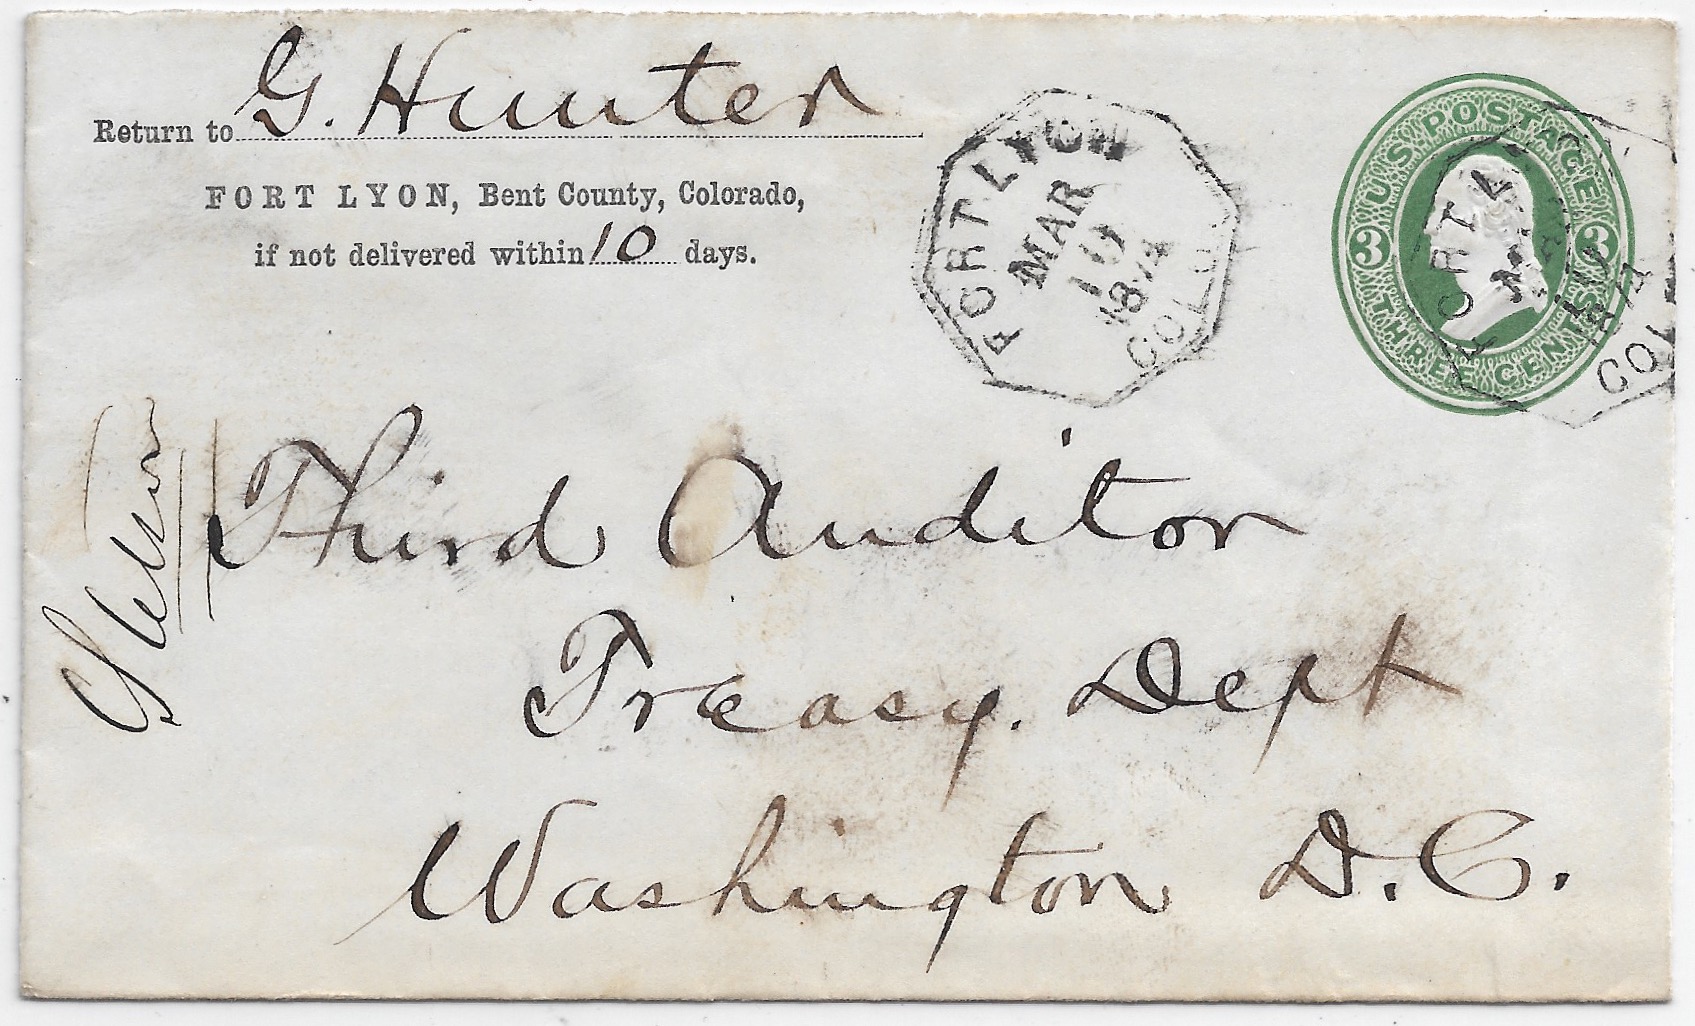 Return to G. Hunter
FORT LYON, Bent County, Colorado,
if not delivered within 10 days.
FORT LYON
MAR
10
1874
COL
U.S. POSTAGE
3 3
THREE CENTS
FORT L
MAR
10
1874
COL
Third Auditor
Treasy. Dept
Washington D.C.